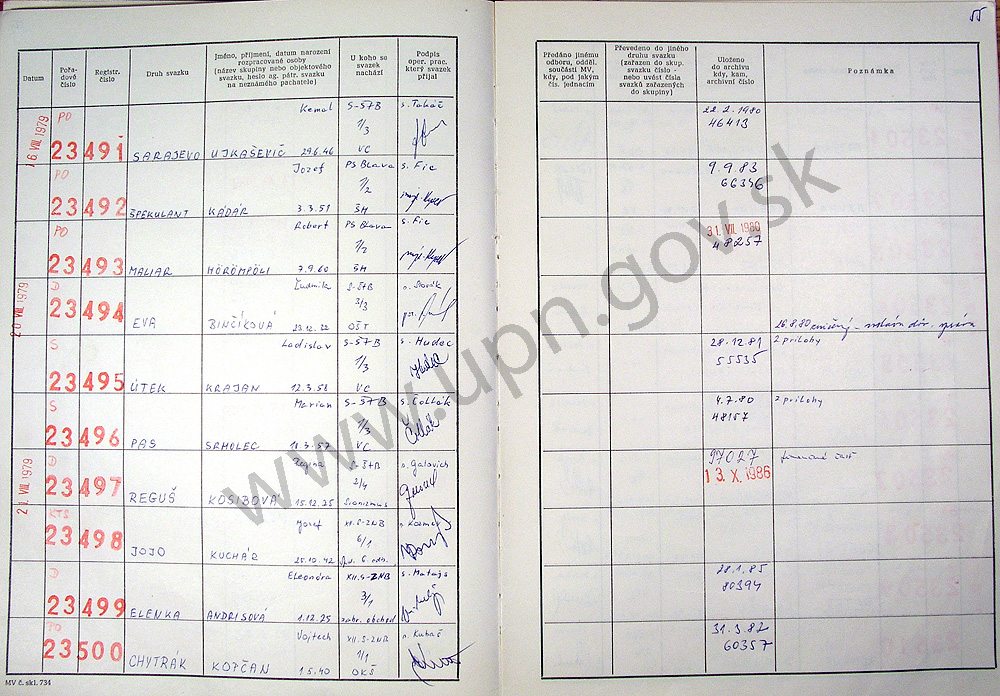 55
Datum
Pořa-
dové
číslo
Registr.
číslo
Druh svazku
Jméno, příjmení, datum narození
rozpracované osoby
(název skupiny nebo objektového
svazku, heslo ag. pátr. svazku
na neznámého pachatele)
U koho se
svazek
nachází
Podpis
oper. prac.
který svazek
přijal
Předáno jinému
odboru, odděl.
součásti MV,
kdy, pod jakým
čís. jednacím
Převedeno do jiného
druhu svazku
(zařazen do skup.
svazku číslo -
nebo uvést čísla
svazků zařazených
do skupiny)
Uloženo
do archivu
kdy, kam,
archivní číslo
Poznámka
16. VIII. 1979
PO
Kemal S-ŠTB s. Ťaháč
1/3
23491 SARAJEVO UJKAŠEVIČ 29.6.46 VC
22.2.1980
46413
PO
Jozef PS Blava s. Fic
7/2
23492 ŠPEKULANT KÁDÁR 3.3.51 ŠM
9.9.83
66346
PO
Robert PS Blava s. Fic
7/2
23493 MALIAR HÖRÖMPÖLI 7.9.60 ŠM
31. VII. 1980
48257
20 VIII 1979
D
Ľudmila S-ŠtB
3/3
23494 EVA BINČÍKOVÁ 23.12.22 OŠT
26.8.80
S
Ladislav S-ŠTB s. Hudec
1/3
23495 ÚTEK KRAJAN 12.3.58 VC
28.12.81
55535
2 prílohy
S
Marian S-ŠTB s. Čollák
1/3
23496 PAS SRHOLEC 18.3.57 VC
4.7.80
48157
2 prílohy
21. VIII. 1979
D
Regina S-ŠtB s. Galovich
2/4
23497 REGUŠ KOSIBOVÁ 15.12.25 Sionizmus
97027
13. X. 1986
KTS
Jozef XII.S-ZNB
6/1
23498 JOJO KUCHÁR 25.10.42
D
Eleonora XII.S-ZNB s. Matajs
3/1
23499 ELENKA ANDRISOVÁ 1.12.25 zahr. obchod
28.1.85
80394
PO
Vojtech XII.S-ZNB s. Kubač
1/1
23500 CHYTRÁK KOPČAN 1.5.40 OKŠ
31.3.82
60357
MV č. skl. 734
www.upn.gov.sk